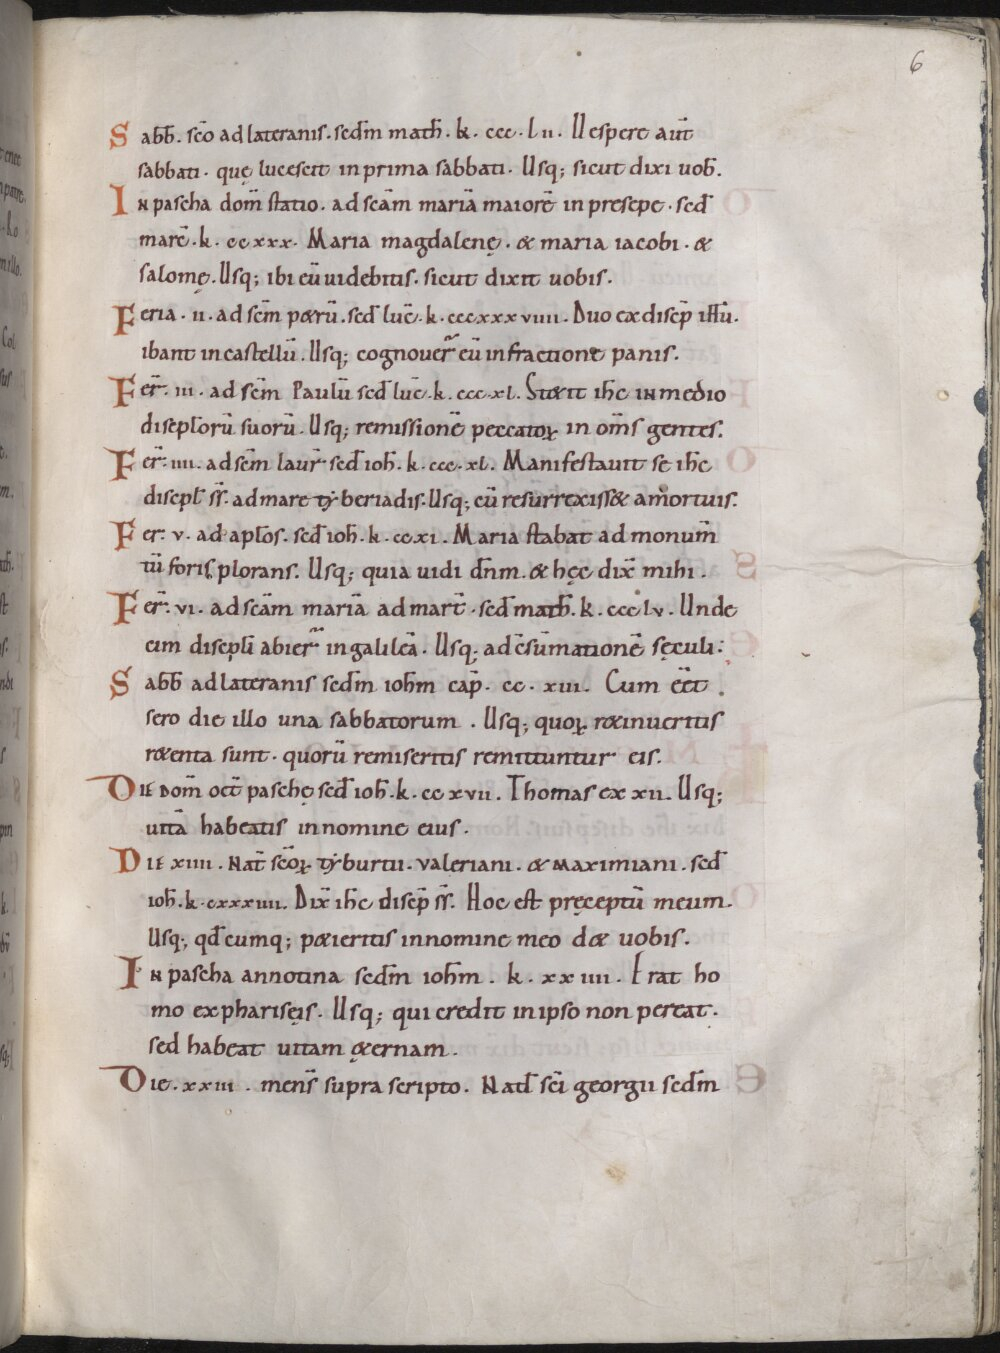 6
Sabb̄. sc̄o ad lateranis. scd̄m math̄. k. ccc. l ii. Uespere aut̄
sabbati. quę lucescit in prima sabbati. Usq; sicut dixi uob̄.
IN pascha dom̄ statio. ad scām mariā maiorē in presepe. scd̄
marc̄. k. ccxxx. Maria magdalenę. & maria iacobi. &
salomę. Usq; ibi eū uidebitis. sicut dixit uobis.
Feria. ii. ad scm̄ p&rū. scd̄ luc̄. k. cccxxxviiii. Duo ex discip̄ ih̄u.
ibant in castellū. Usq; cognouer̄ eū in fractione panis.
Fer̄. iii. ad scm̄ Paulū scd̄ luc̄. k. ccc. xl. St&it ih̄c IN medio
discipl̄orū suorū. Usq; remissionē peccatoꝝ in om̄s gentes.
Fer̄. iiii. ad scm̄ laur̄ scd̄ ioh̄. k. ccc. xl. Manifestauit se ih̄c
discipl̄ ss̄. ad mare tẏberiadis. Usq; cū resurrexiss& a mortuis.
Fer̄. v. ad apl̄os. scd̄ ioh̄. k. ccxi. Maria stabat ad monum̄
tū foris plorans. Usq; quia uidi dn̄m. & hęc dix̄ mihi.
Fer̄. vi. ad scām mariā ad mart̄. scd̄ math̄. k. ccc lv. Unde
cim discipli abier̄ in galileā. Usq; ad c̄sūmationē sęculi:
Sabb̄ ad lateranis scd̄m ioh̄m cap̄. cc. xiii. Cum ēēt
sero die illo una sabbatorum. Usq; quoꝝ r&inueritis
r&enta sunt. quorū remiseritis remittuntur eis.
DIE DOM̄ oct̄ paschę scd̄ ioh̄. k. ccxvii. Thomas ex xii. Usq;
uitā habeatis in nomine eius.
DIE xiiii. NAT̄ sc̄oꝝ tẏburtii. valeriani. & MAXIMIANI. scd̄
ioh̄. k. cxxxiiii. Dix̄ ih̄c discip̄ ss̄. Hoc est pręceptū meum.
Usq; qd̄cumq; p&ieritis in nomine meo d& uobis.
IN pascha annotina scd̄m ioh̄m. k. xxiiii. Erat ho
mo ex phariseis. Usq; qui credit in ipso non pereat.
sed habeat uitam ęternam.
Die. xxiii. mens̄ supra scripto. Nat̄ sc̄i georgii scd̄m